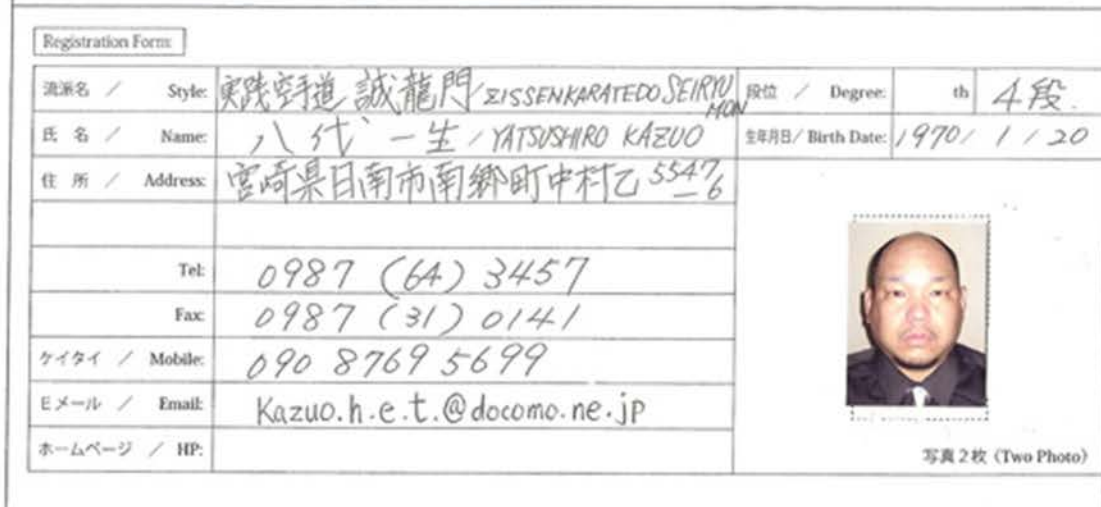 Registration Form:
流派名 / Style: 実践空手道 誠龍門/ZISSENKARATEDO SEIRYUMON 段位 / Degree: th 4段.
氏 名 / Name: 八代 一生/YATSUSHIRO KAZUO 生年月日/ Birth Date: 1970/1/20
住 所 / Address: 宮崎県日南市南郷町中村乙5547-6
Tel: 0987 (64) 3457
Fax: 0987 (31) 0141
ケイタイ / Mobile: 090 8769 5699
Eメール / Email: Kazuo.h.e.t.@docomo.ne.jp
ホームページ / HP:
写真2枚 (Two Photo)